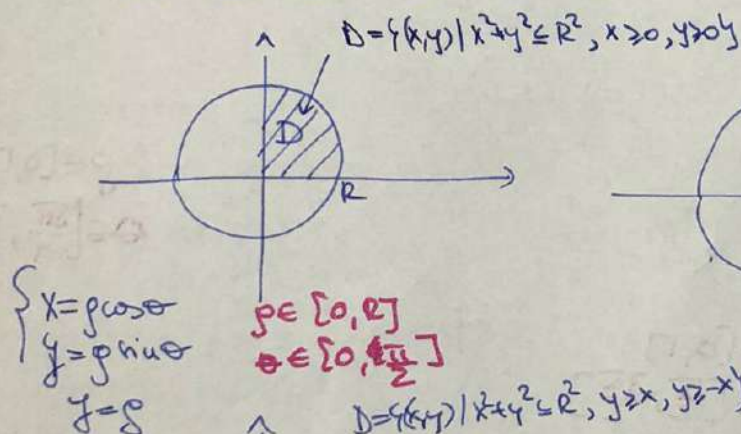 D={(x,y) | x²+y² ≤ R², x≥0, y≥0}
D
R
{ x=ρcosθ
y=ρsinθ
ρ∈[0,R]
θ∈[0,π/2]
J=ρ
D={(x,y) | x²+y² ≤ R², y≥x, y≥-x}